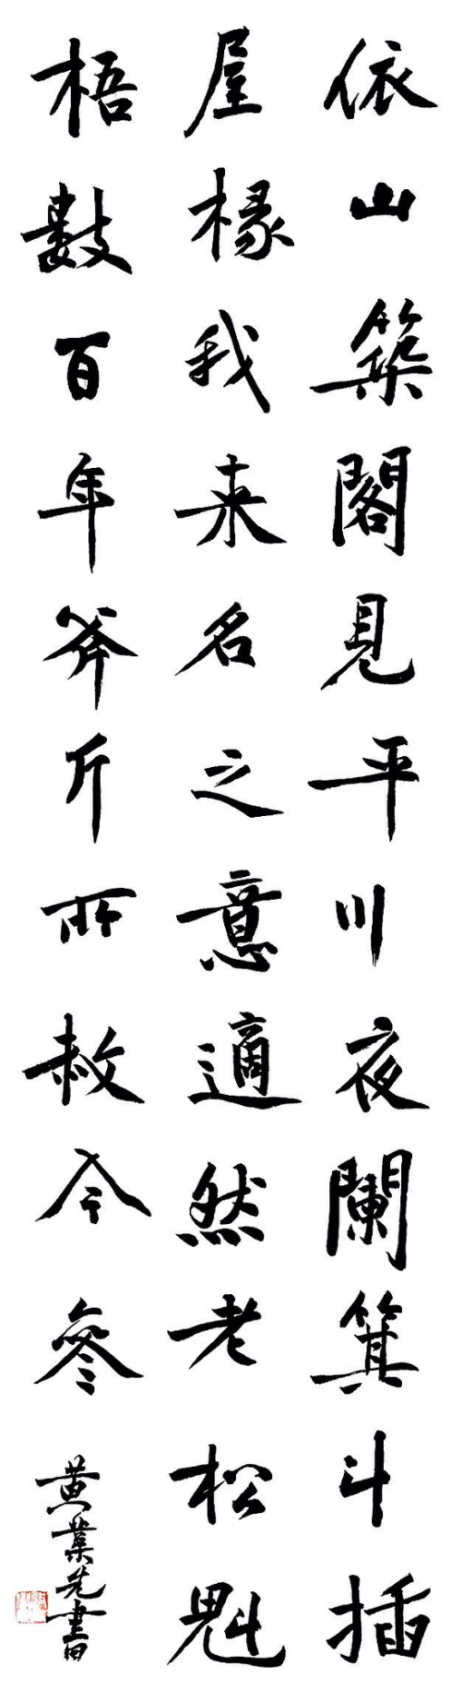 依山築閣見平川夜闌箕斗插
屋椽我来名之意適然老松魁
梧數百年斧斤所赦今參
黄業先書